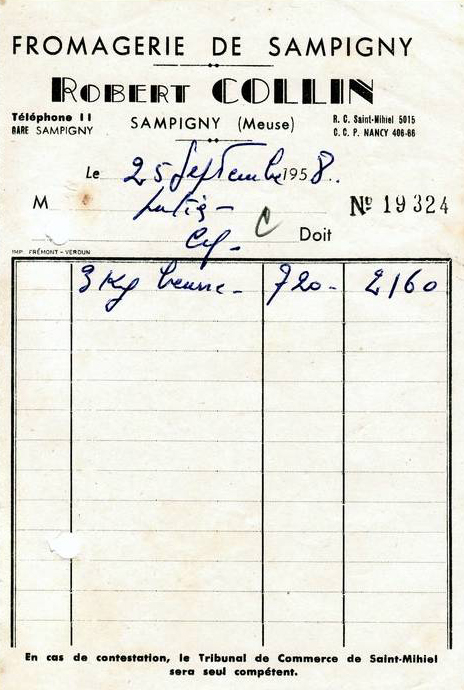 FROMAGERIE DE SAMPIGNY
ROBERT COLLIN
Téléphone 11
GARE SAMPIGNY
SAMPIGNY (Meuse)
R. C. Saint-Mihiel 5015
C. C. P. NANCY 406-86
Le 25 Septembre 1958.
M
Nº 19324
C
Doit
IMP. FRÉMONT - VERDUN
3 Kg beurre - 720 - 2160
En cas de contestation, le Tribunal de Commerce de Saint-Mihiel
sera seul compétent.